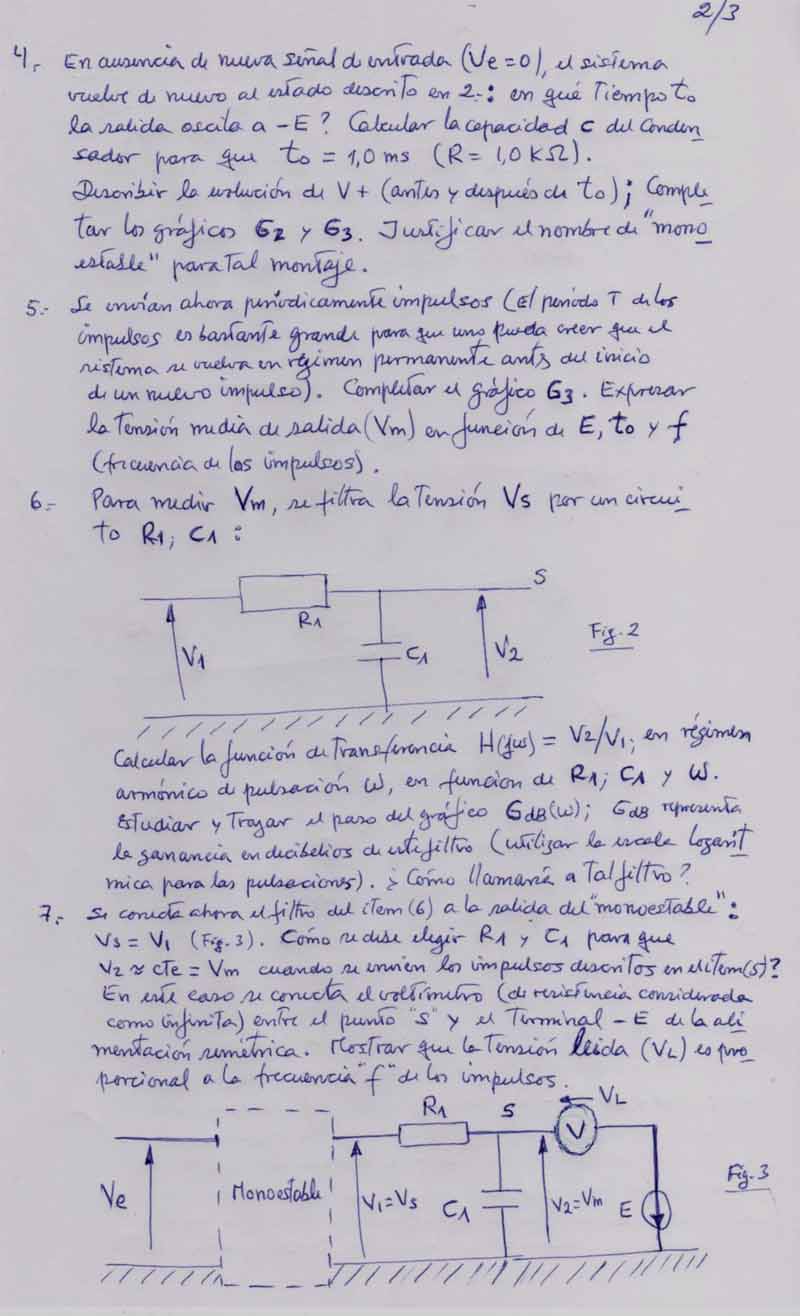 2/3
4.- En ausencia de nueva señal de entrada (Ve=0), el sistema
vuelve de nuevo al estado descrito en 2.-: en qué Tiempo to
la salida oscila a -E? Calcular la capacidad C del Conden
sador para que to = 1,0 ms (R = 1,0 KΩ).
Describir la evolución de V+ (antes y después de to); Comple
tar los gráficos G2 y G3. Justificar el nombre de "mono
estable" para Tal montaje.
5.- Se envían ahora periódicamente impulsos (El período T de los
impulsos es bastante grande para que uno pueda creer que el
sistema se vuelva en régimen permanente antes del inicio
de un nuevo impulso). Completar el gráfico G3. Expresar
la Tensión media de salida (Vm) en función de E, to y f
(frecuencia de los impulsos).
6.- Para medir Vm, se filtra la Tensión Vs por un circui
to R1; C1 :
S
R1
V1
C1
V2
Fig. 2
Calcular la función de Transferencia H(jω) = V2/V1; en régimen
armónico de pulsación ω, en función de R1; C1 y ω.
Estudiar y Trazar el paso del gráfico GdB(ω); GdB representa
la ganancia en decibelios de este filtro (utilizar la escala logarít
mica para las pulsaciones). ¿Cómo llamaría a Tal filtro?
7.- Se conecta ahora el filtro del item (6) a la salida del "monoestable":
Vs = V1 (Fig. 3). Cómo se debe elegir R1 y C1 para que
V2 ≈ cTe = Vm cuando se envíen los impulsos descritos en el item (5)?
En este caso se conecta el voltímetro (de resistencia considerada
como infinita) entre el punto "S" y el Terminal -E de la ali
mentación simétrica. Mostrar que la Tensión leída (VL) es pro
porcional a la frecuencia "f" de los impulsos.
R1 S VL
V
Ve Monoestable V1=Vs C1 V2=Vm E
Fig. 3